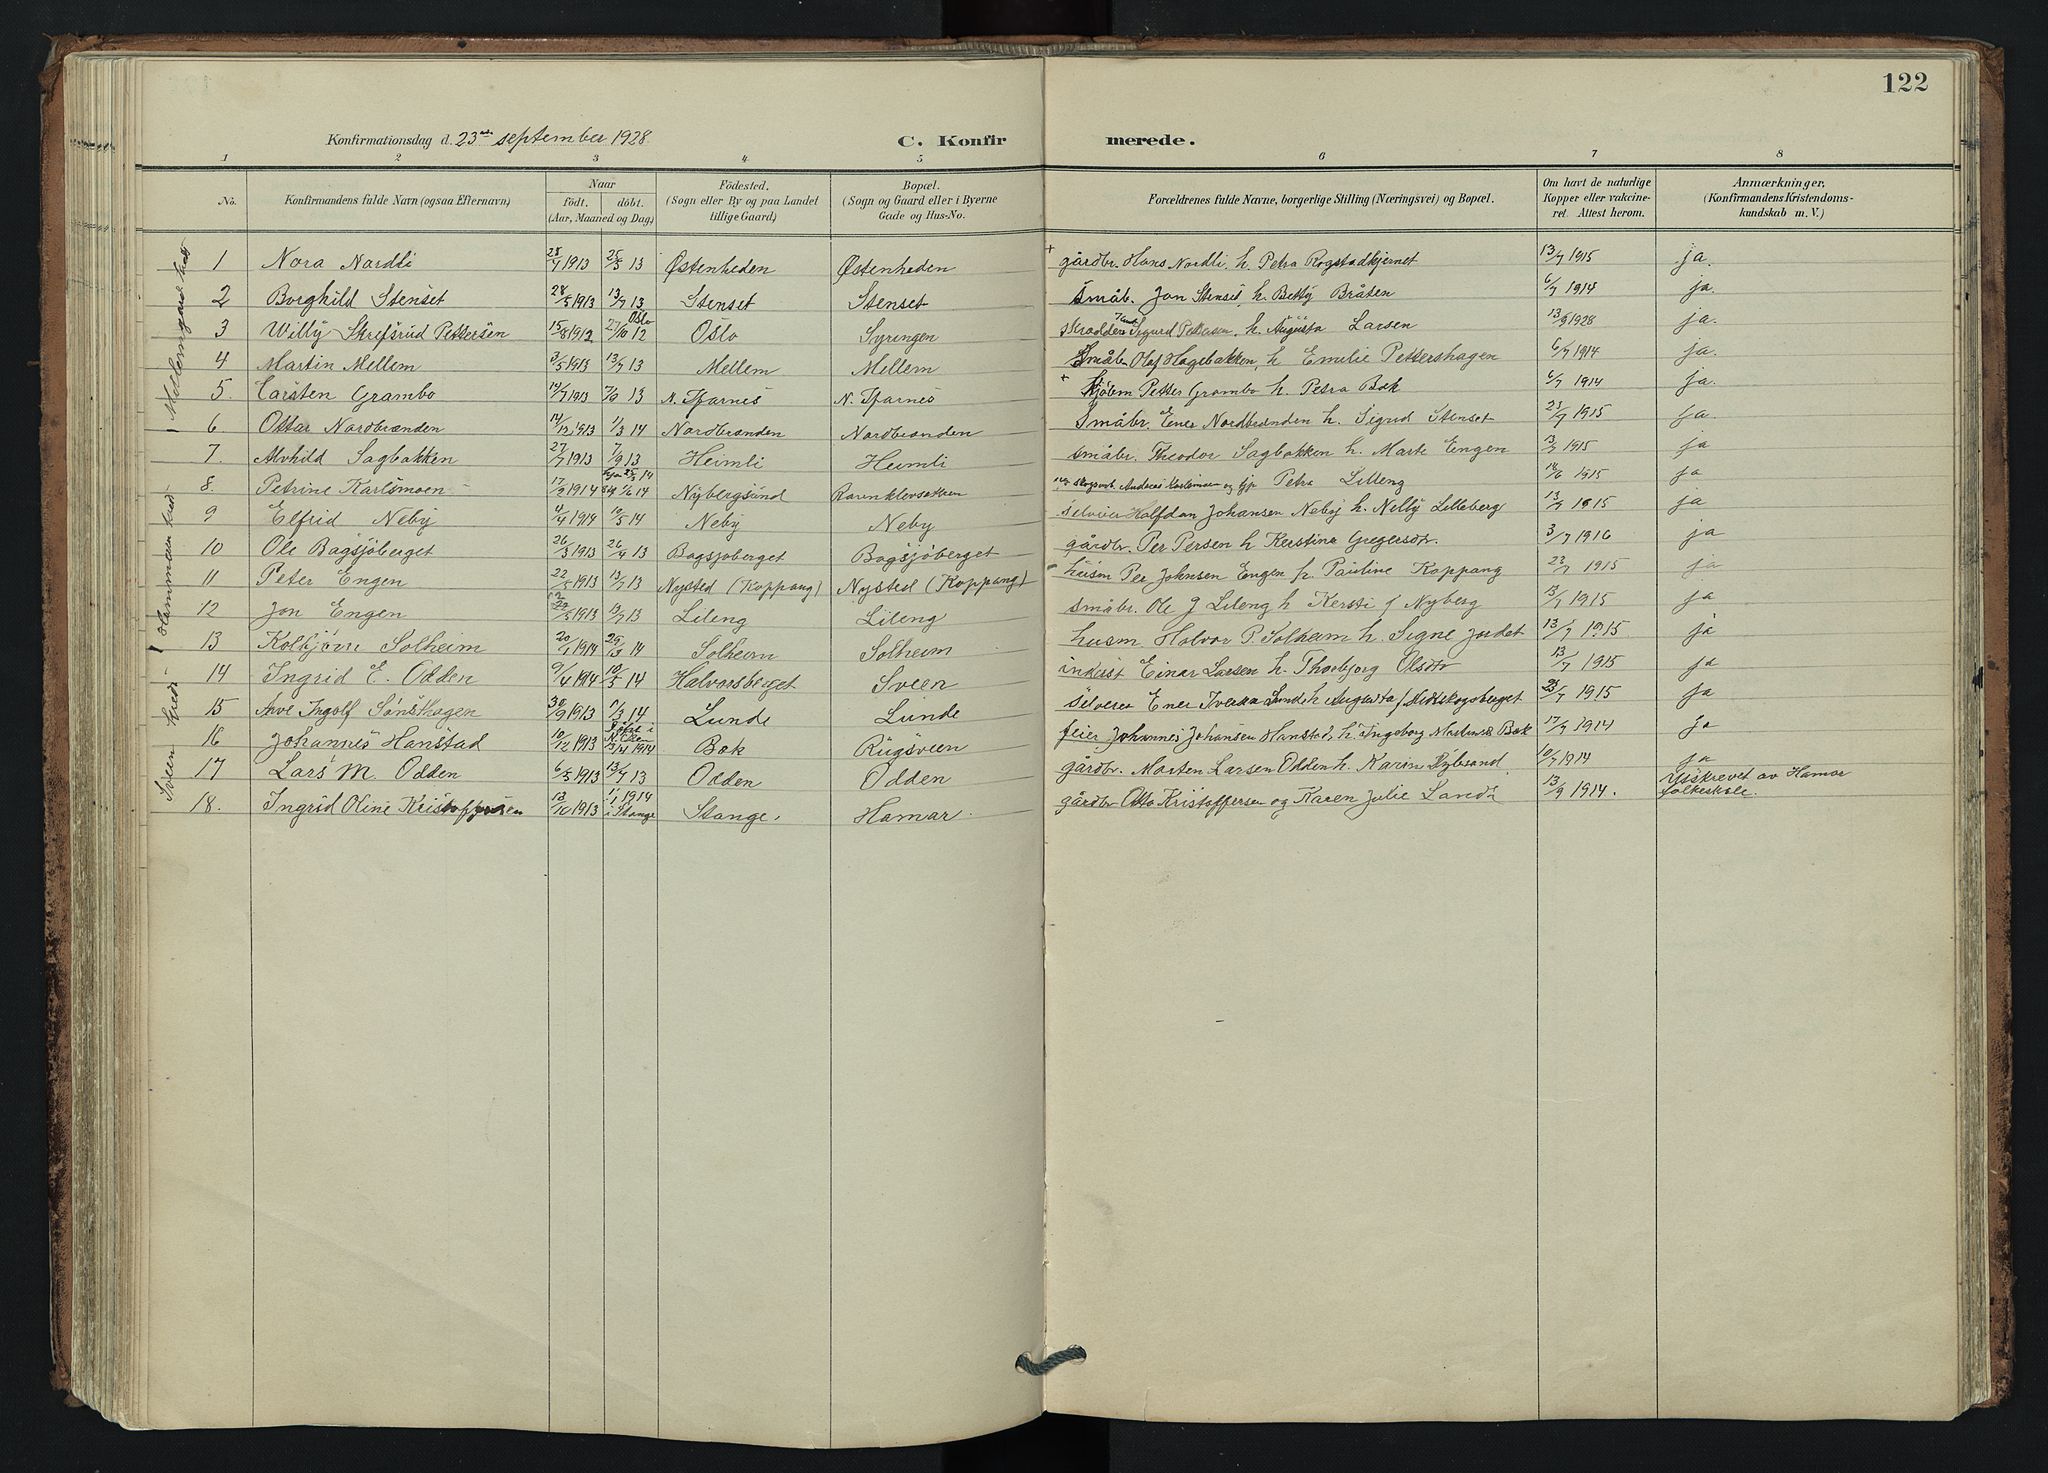 122
Konfirmationsdag d. 23de september 1928.
C. Konfirmerede.
1 2 3 4 5 6 7 8
No. Konfirmandens fulde Navn (ogsaa Efternavn) Naar Födt. döbt. (Aar, Maaned og Dag) Födested. (Sogn eller By og paa Landet tillige Gaard) Bopæl. (Sogn og Gaard eller i Byerne Gade og Hus-No. Forældrenes fulde Navne, borgerlige Stilling (Næringsvei) og Bopæl. Om havt de naturlige Kopper eller vakcineret. Attest herom. Anmærkninger, (Konfirmandens Kristendomskundskab m. V.)
1 Nora Nordli 1913 25/5 13 Østenheden Østenheden + gårdbr. Hans Nordli, h. Petra Rogstadkjernet 13/7 1915 ja.
2 Borghild Stenset 28/5 1913 13/7 13 Stenset Stenset småb. Jon Stenset, h. Betty Bråten 6/7 1914 ja.
3 Willy Skrefsrud Pettersen 15/8 1912 27/10 12 Oslo Oslo Syringen skrædder Sigurd Pettersen, h. Augusta Larsen 13/9 1928 ja.
4 Martin Mellem 3/5 1913 13/7 13 Mellem Mellem Småbr Olaf Hagebakken, h Emilie Pettershagen 6/7 1914 ja.
5. Carsten Grambo 19/7 1913 13 N. Tjarnes N. Tjarnes + Petter Grambo h. Petra Bæk 6/7 1914 ja.
6 Ottar Nordbrænden 14/12 1913 1/3 14 Nordbrænden Nordbrænden Småbr. Ener Nordbrænden h. Sigrid Stenset 23/7 1915 ja.
7. Alvhild Sagbakken 27/7 1913 7/9 13 Heimli Heimli småbr. Theodor Sagbakken h. Marte Engen 13/7 1915 ja
8. Petrine Karlsmoen 17/2 1914 14 Nybergsund skogsarb. Andreas Karlsmoen og Petra Lilleng 1915 ja
9 Elfrid Neby 4/4 1914 10/5 14 Neby Neby Halfdan Johansen Neby h. Nelly Lilleberg 13/7 1915 ja
10 Ole Bagsjöberget 26/3 1913 26/4 13 Bagsjöberget Bagsjöberget gårdbr. Per Persen h Kerstina Gregersdtr. 3/7 1916 ja
11 Peter Engen 22/5 1913 13/7 13 Nysted (Koppang) Nysted (Koppang) husm Per Johnsen Engen h. Pauline Koppang 23/7 1915 ja
12 Jon Engen 1913 13/7 13 Lileng Lileng småbr. Ole J Lileng h Kersti J Nyberg 13/7 1915 ja
13 Kolbjørn Solheim 20/1 1914 29/3 14 Solheim Solheim husm Halvor P. Solheim h. Signe Jordet 13/7 1915 ja
14 Ingrid E. Odden 9/4 1914 10/5 14 Halvorsberget Sveen inderst Einar Larsen h. Thorbjorg Olsdtr 13/7 1915 ja
15 Arve Ingolf Sønskagen 30/9 1913 1/3 14 Lunde Lunde Ener Iversen Lunde h Augusta Midtskogsberget 23/7 1915 ja
16 Johannes Hanstad 10/12 1913 1914 Bæk Rugsveen feier Johannes Johansen Hanstad, h. Ingeborg Martinsd. Bæk 17/7 1914 ja
17 Lars M. Odden 6/5 1913 13/7 13 Odden Odden gårdbr. Morten Larsen Odden h. Karin Nybesund 10/7 1914 ja
18. Ingrid Oline Kristoffersen 13/10 1913 1/1 1914 i Stange Stange. Hamar. gårdbr Otto Kristoffersen og Karen Julie 13/9 1914. Utskrevet av Hamar folkeskole.
Mellemgard kred
Hammeren kred
Sveen kreds